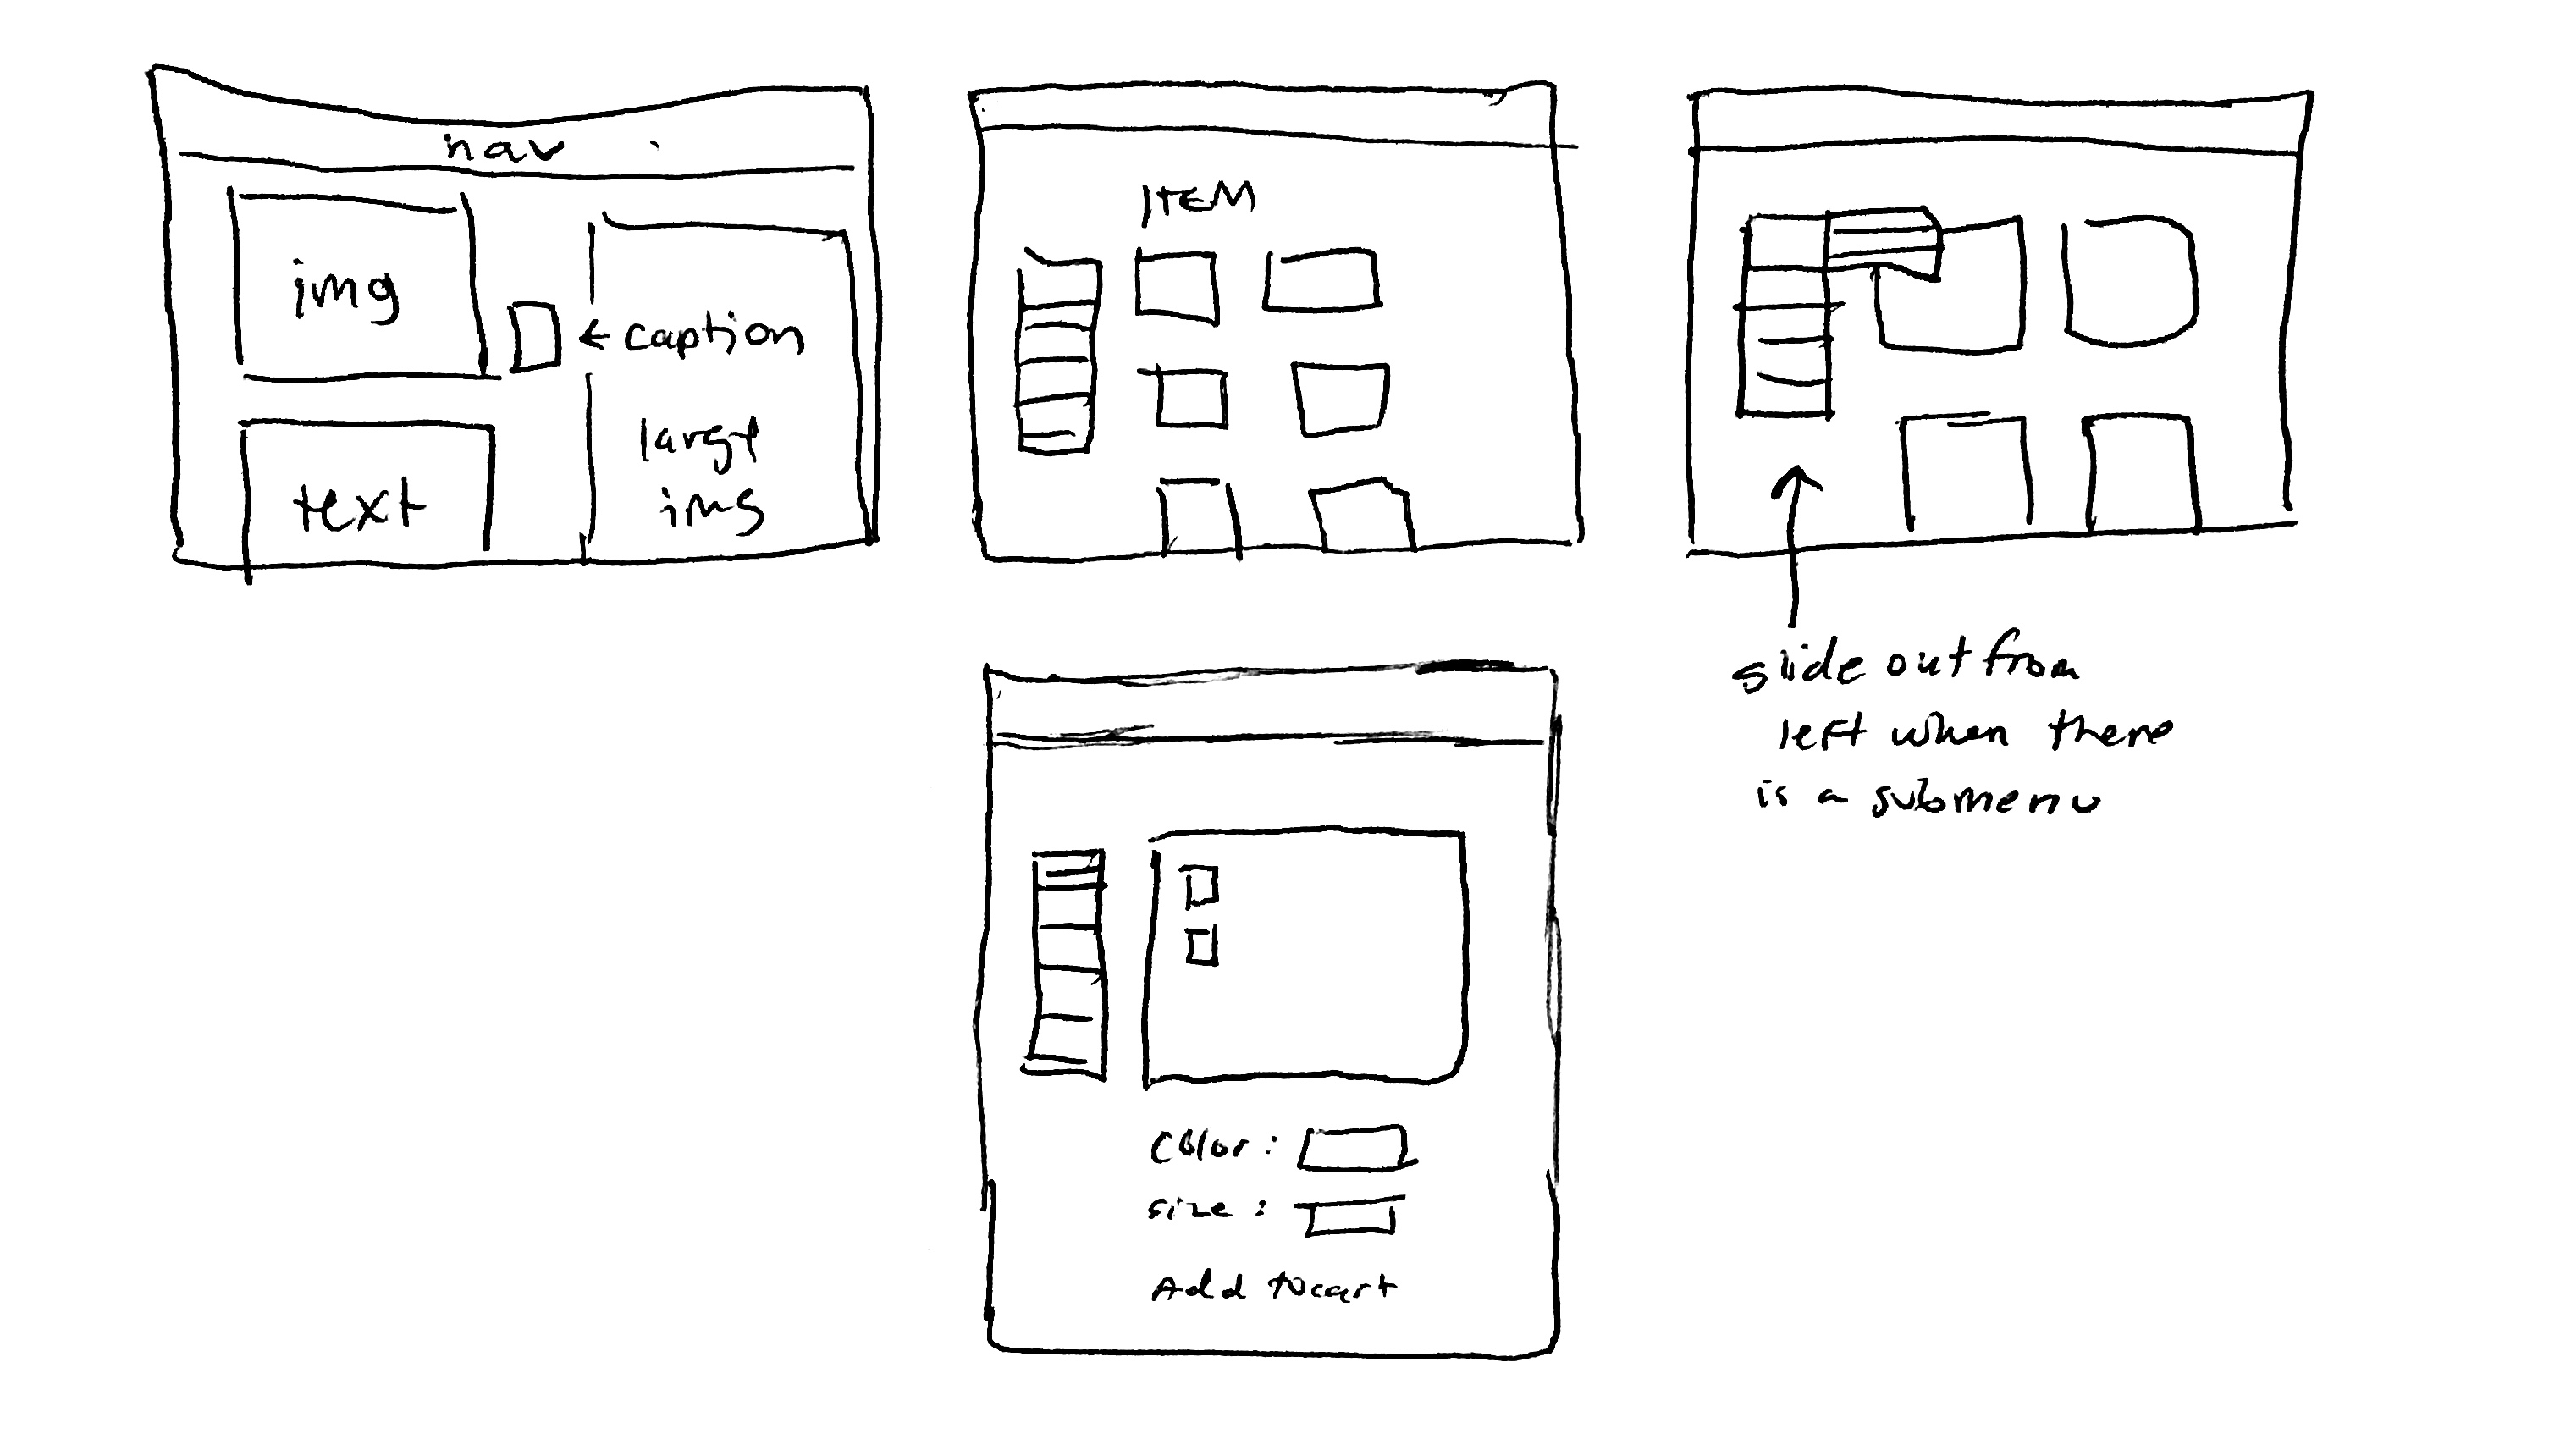 nav
img
← caption
large
img
text
ITEM
slide out from
left when there
is a submenu
Color:
size:
Add to cart